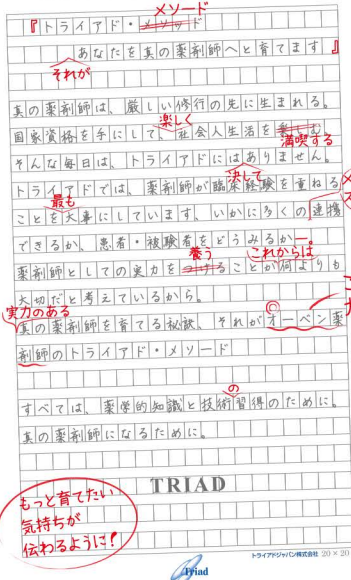 メソード
『トライアド・メソッド
あなたを真の薬剤師へと育てます』
それが
真の薬剤師は、厳しい修行の先に生まれる。
楽しく
国家資格を手にして、社会人生活を楽しむ
満喫する
そんな毎日は、トライアドにはありません。
決して
トライアドでは、薬剤師が臨床経験を重ねる
最も
ことを大事にしています。いかに多くの連携
できるか、患者・被験者をどうみるか―。
養う
これからは
薬剤師としての実力をつけることが何よりも
大切だと考えているから。
実力のある
真の薬剤師を育てる秘訣、それがオーベン薬
剤師のトライアド・メソード
の
すべては、薬学的知識と技術習得のために。
真の薬剤師になるために。
TRIAD
もっと育てたい
気持ちが
伝わるように!
トライアドジャパン株式会社 20×20
Triad